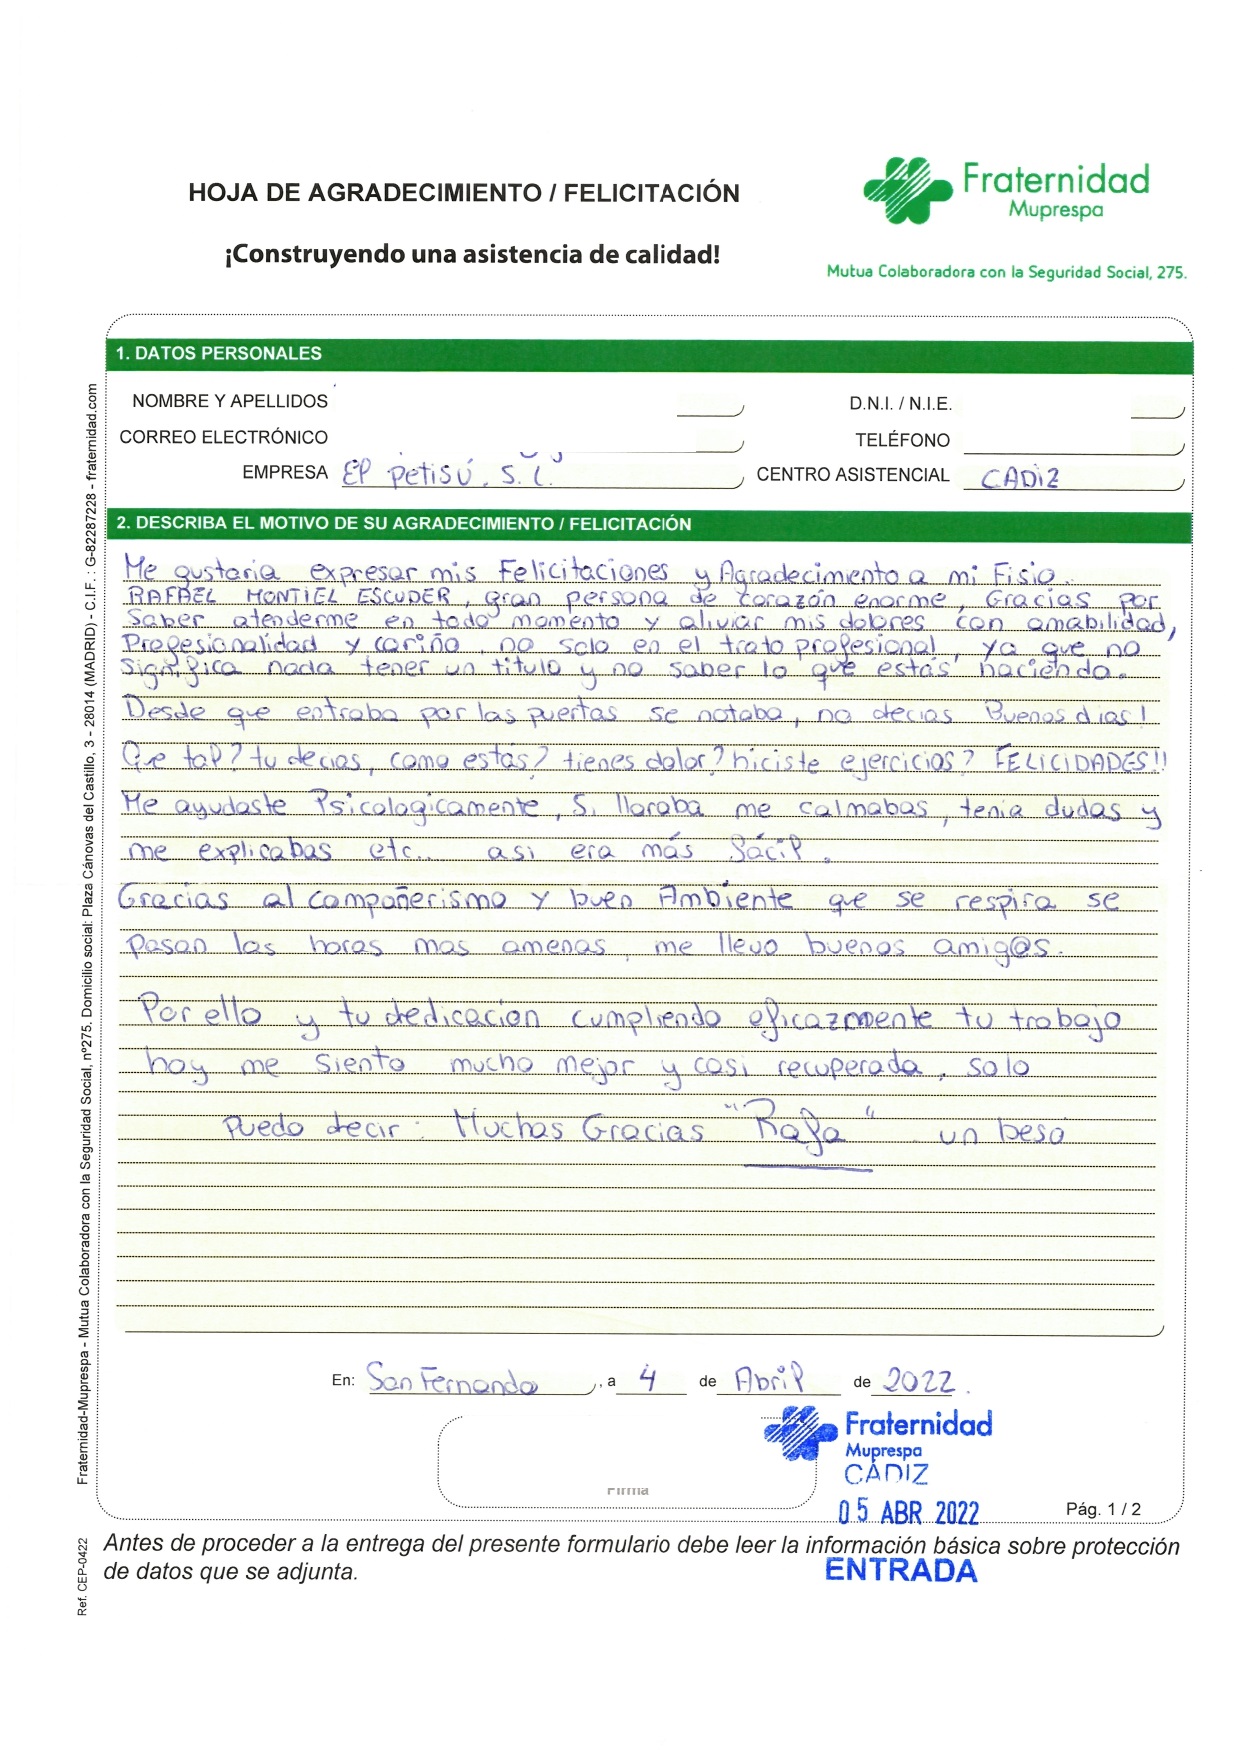 HOJA DE AGRADECIMIENTO / FELICITACIÓN
¡Construyendo una asistencia de calidad!
Fraternidad
Muprespa
Mutua Colaboradora con la Seguridad Social, 275.
1. DATOS PERSONALES
NOMBRE Y APELLIDOS
D.N.I. / N.I.E.
CORREO ELECTRÓNICO
TELÉFONO
EMPRESA El Petisú, S.L.
CENTRO ASISTENCIAL CADIZ
2. DESCRIBA EL MOTIVO DE SU AGRADECIMIENTO / FELICITACIÓN
Me gustaria expresar mis Felicitaciones y Agradecimiento a mi Fisio.
RAFAEL MONTIEL ESCUDER, gran persona de corazón enorme, Gracias por
Saber atenderme en todo momento y aliviar mis dolores con amabilidad,
Profesionalidad y cariño, no solo en el trato profesional, ya que no
significa nada tener un titulo y no saber lo que estás haciendo.
Desde que entraba por las puertas se notaba, no decias Buenos dias!
Que tal? tu decias, como estás? tienes dolor? hiciste ejercicios? FELICIDADES!!
Me ayudaste Psicologicamente, Si lloraba me calmabas, tenia dudas y
me explicabas etc.. asi era más fácil.
Gracias al compañerismo y buen Ambiente que se respira se
pasan las horas mas amenas, me llevo buenos amig@s.
Por ello y tu dedicación cumpliendo eficazmente tu trabajo
hoy me siento mucho mejor y casi recuperada, solo
puedo decir: Muchas Gracias "Rafa" un beso
En: San Fernando, a 4 de Abril de 2022.
Firma
Fraternidad
Muprespa
CÁDIZ
05 ABR 2022
ENTRADA
Pág. 1 / 2
Antes de proceder a la entrega del presente formulario debe leer la información básica sobre protección
de datos que se adjunta.
Fraternidad-Muprespa - Mutua Colaboradora con la Seguridad Social, nº275. Domicilio social: Plaza Cánovas del Castillo, 3 - 28014 (MADRID) - C.I.F. : G-82287228 - fraternidad.com
Ref. CEP-0422